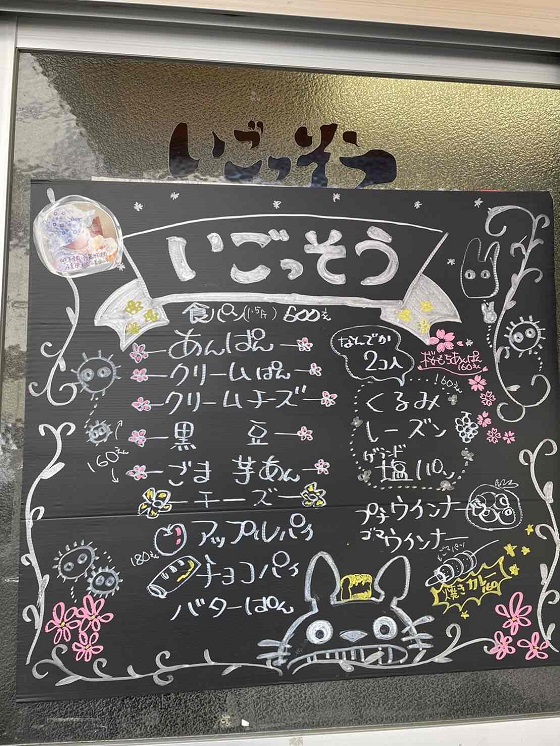 いごっそう
いごっそう
食パン(1.5斤) 600えん
あんぱん
クリームぱん
クリームチーズ
黒 豆
ごま 芋あん
チーズ
160えん
アップルパイ
チョコパイ
180えん
バターぱん
なんでか
2コ入
160えん
くるみ
レーズン
塩パン
プチウインナー
ゴマウインナー
焼きカレー